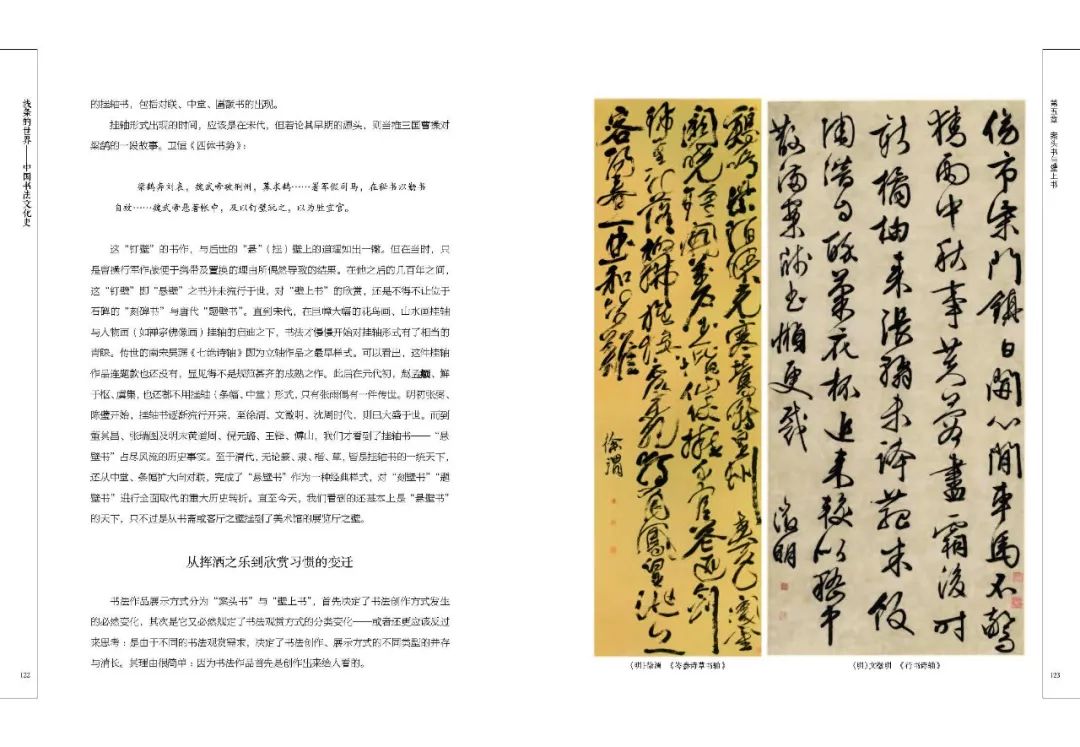 线条的世界——中国书法文化史
的挂轴书，包括对联、中堂、匾额书的出现。
挂轴形式出现的时间，应该是在宋代，但若论其早期的源头，则当推三国曹操对
梁鹄的一段故事。卫恒《四体书势》：
梁鹤奔刘表，魏武帝破荆州，募求鹤……署军假司马，在秘书以勤书
自效……魏武帝悬著帐中，及以钉壁玩之，以为胜宜官。
这“钉壁”的书作，与后世的“悬”（挂）壁上的道理如出一辙。但在当时，只
是曹操行军作战便于携带及置换的理由所偶然导致的结果。在他之后的几百年之间，
这“钉壁”即“悬壁”之书并未流行于世，对“壁上书”的欣赏，还是不得不让位于
石碑的“刻碑书”与唐代“题壁书”。直到宋代，在巨幛大幅的花鸟画、山水画挂轴
与人物画（如禅宗佛像画）挂轴的启迪之下，书法才慢慢开始对挂轴形式有了相当的
青睐。传世的南宋吴琚《七绝诗轴》即为立轴作品之最早样式。可以看出，这件挂轴
作品连题款也还没有，显见得不是规范甚齐的成熟之作。此后在元代初，赵孟頫、鲜
于枢、虞集，也还都不用挂轴（条幅、中堂）形式，只有张雨偶有一件传世。明初张弼、
陈璧开始，挂轴书逐渐流行开来，至徐渭、文徵明、沈周时代，则已大盛于世。而到
董其昌、张瑞图及明末黄道周、倪元璐、王铎、傅山，我们才看到了挂轴书——“悬
壁书”占尽风流的历史事实。至于清代，无论篆、隶、楷、草，皆是挂轴书的一统天下，
还从中堂、条幅扩大向对联，完成了“悬壁书”作为一种经典样式，对“刻壁书”“题
壁书”进行全面取代的重大历史转折。直至今天，我们看到的还基本上是“悬壁书”
的天下，只不过是从书斋或客厅之壁挂到了美术馆的展览厅之壁。
从挥洒之乐到欣赏习惯的变迁
书法作品展示方式分为“案头书”与“壁上书”，首先决定了书法创作方式发生
的必然变化，其次是它又必然规定了书法观赏方式的分类变化——或者还更应该反过
来思考：是由于不同的书法观赏需求，决定了书法创作、展示方式的不同类型的并存
与消长。其理由很简单：因为书法作品首先是创作出来给人看的。
122
鸡鸣紫陌曙光寒莺转皇州春色阑金
阙晓钟开万户玉阶仙仗拥千官花迎剑
珮星初落柳拂旌旗露未干独有凤凰池上
客阳春一曲和皆难
徐渭
（明）徐渭 《岑参诗草书轴》
市朱门镇日闲心闲车马不惊
猜雨中秋事黄花尽霜后时
新橘柚来汤饼未谐菰米饭
菊花杯近来较似
散满案残书懒更裁
徵明
（明）文徵明 《行书诗轴》
第五章 案头书与壁上书
123